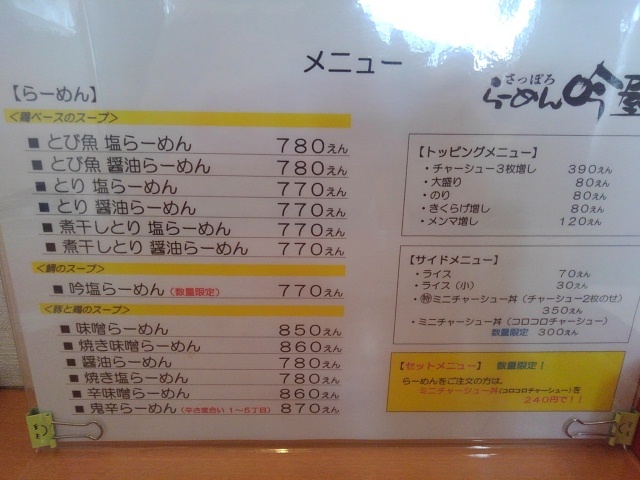 メニュー
さっぽろ
らーめん吟屋
【らーめん】
<鶏ベースのスープ>
■ とび魚 塩らーめん 780えん
■ とび魚 醤油らーめん 780えん
■ とり 塩らーめん 770えん
■ とり 醤油らーめん 770えん
■ 煮干しとり 塩らーめん 770えん
■ 煮干しとり 醤油らーめん 770えん
<鯛のスープ>
■ 吟塩らーめん (数量限定) 770えん
<豚と鶏のスープ>
■ 味噌らーめん 850えん
■ 焼き味噌らーめん 860えん
■ 醤油らーめん 780えん
■ 焼き塩らーめん 780えん
■ 辛味噌らーめん 860えん
■ 鬼辛らーめん (辛さ度合い 1～5丁目) 870えん
【トッピングメニュー】
・チャーシュー3枚増し 390えん
・大盛り 80えん
・のり 80えん
・きくらげ増し 80えん
・メンマ増し 120えん
【サイドメニュー】
・ライス 70えん
・ライス(小) 30えん
・㊕ミニチャーシュー丼(チャーシュー2枚のせ)
350えん
・ミニチャーシュー丼(コロコロチャーシュー)
数量限定 300えん
【セットメニュー】 数量限定!
らーめんをご注文の方は、
ミニチャーシュー丼(コロコロチャーシュー)を
240円で!!